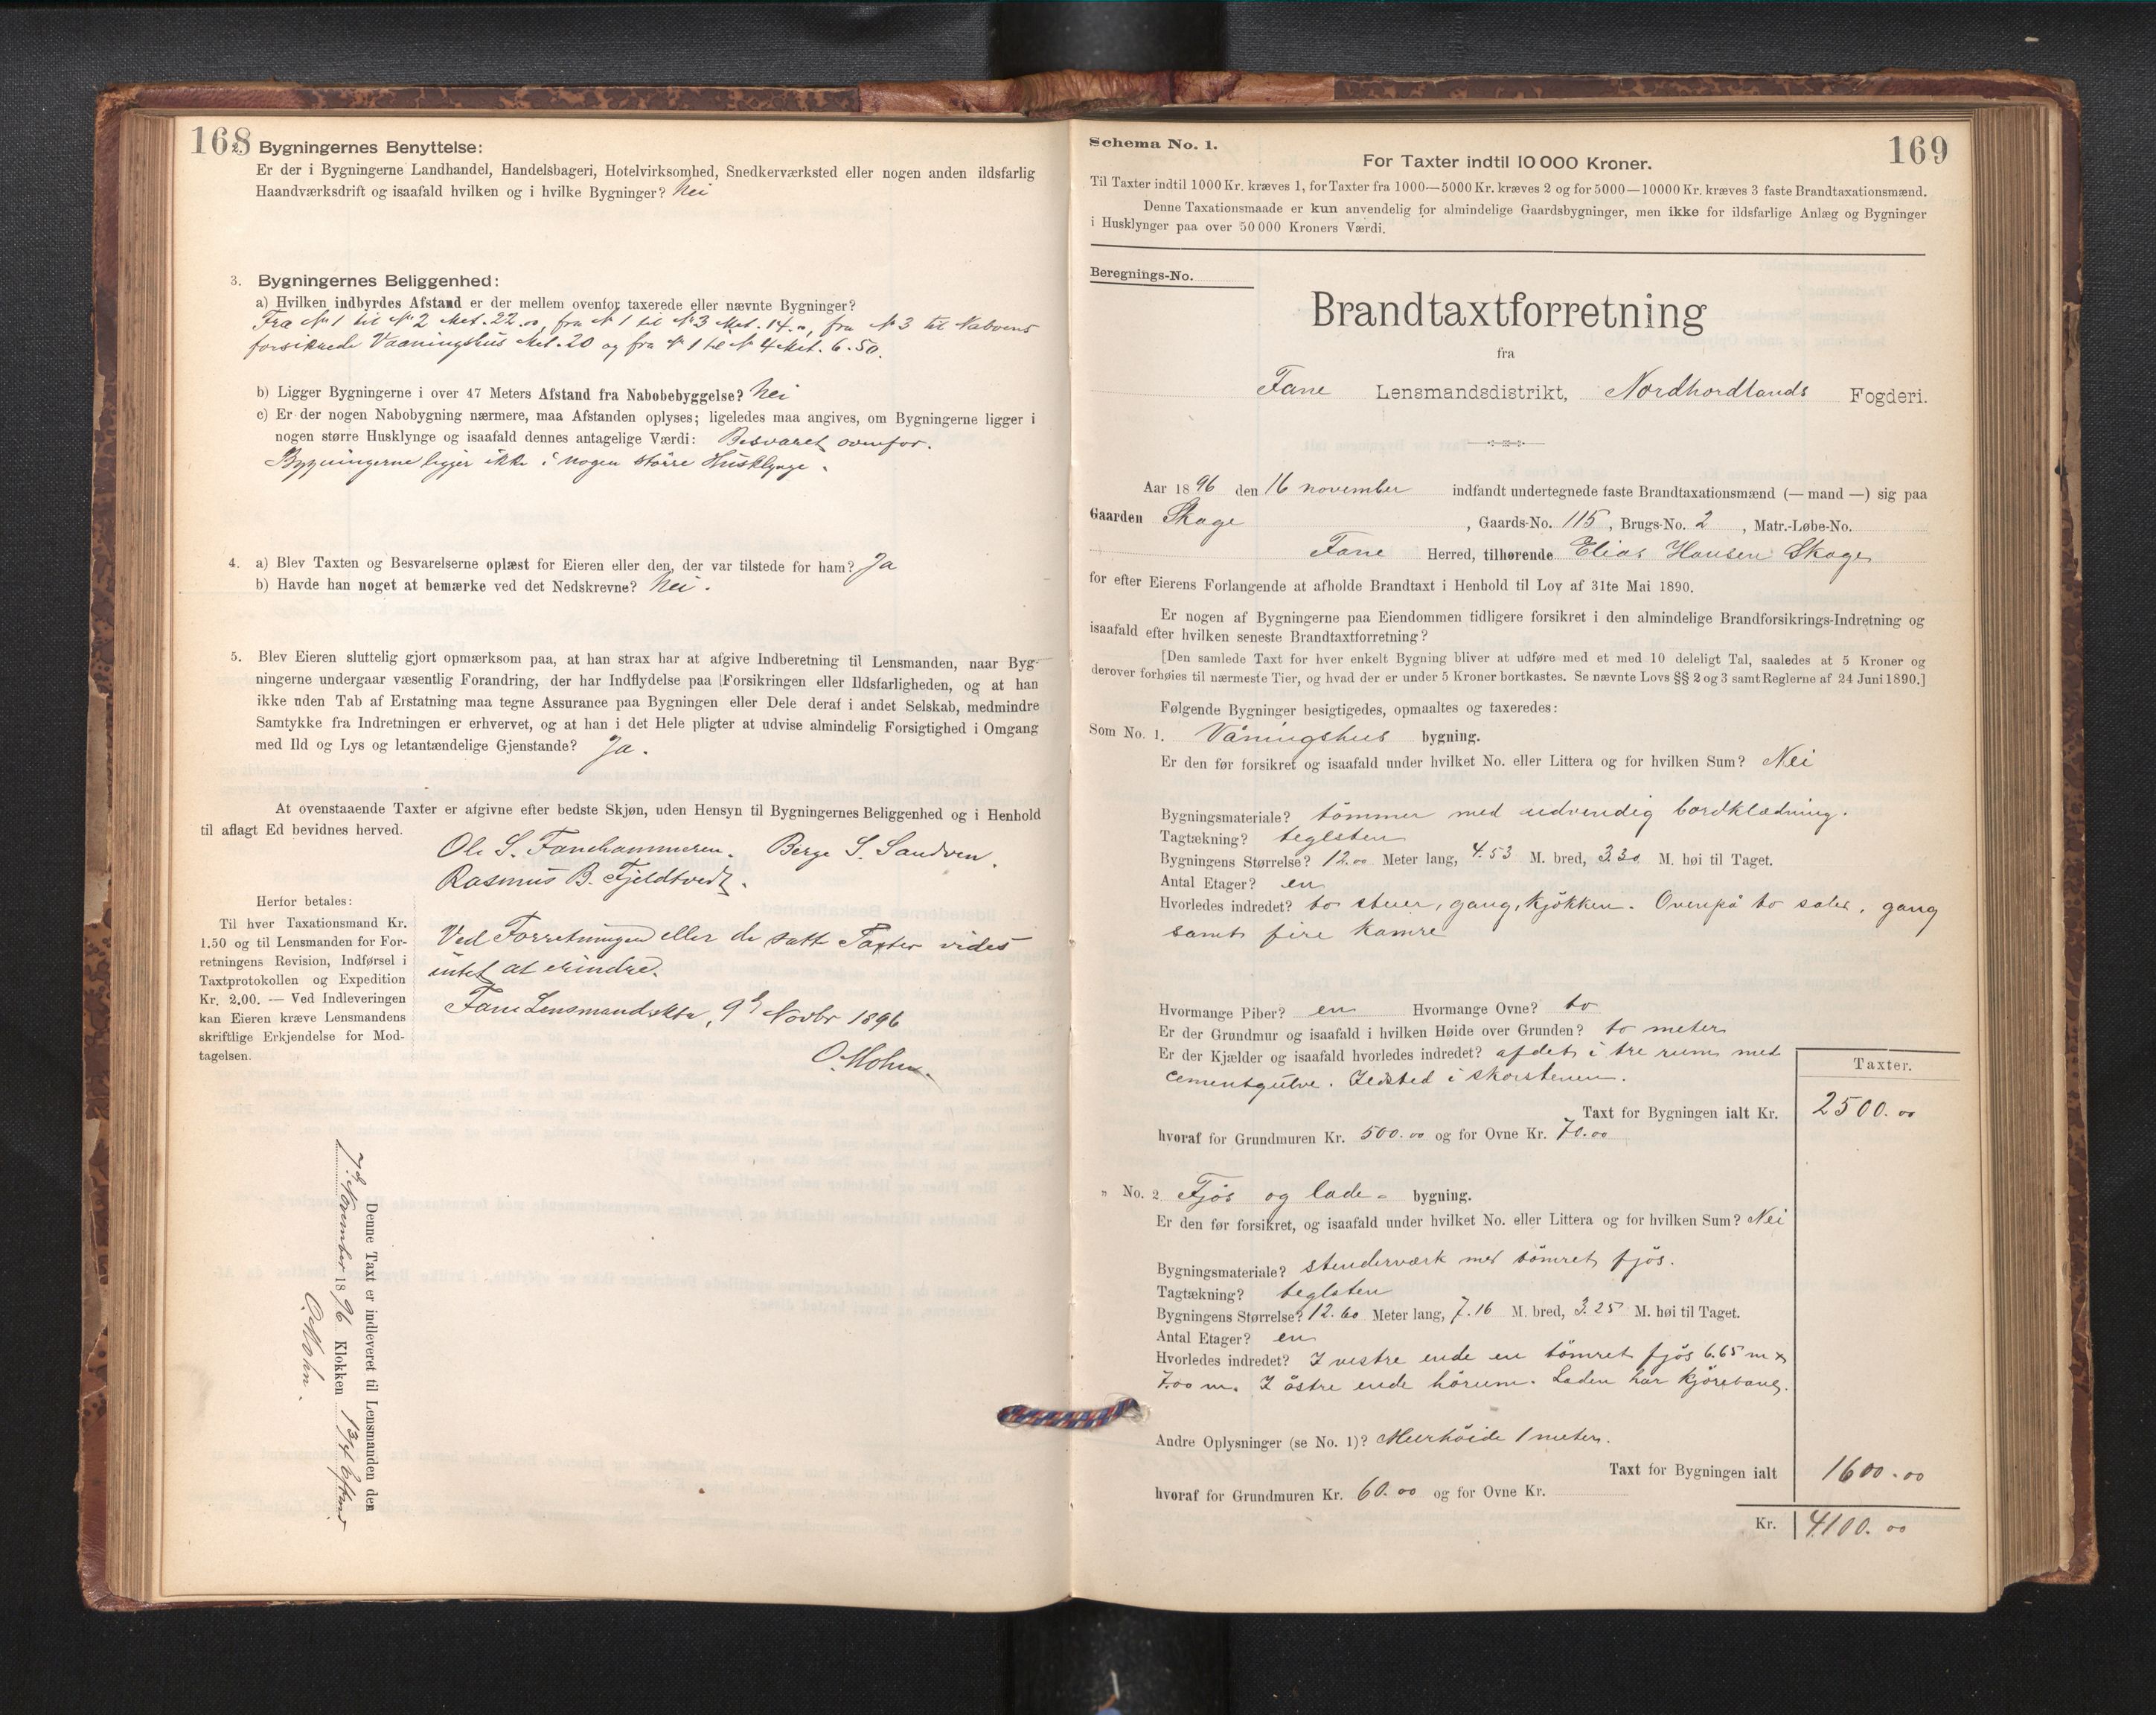 168
2. Bygningernes Benyttelse:
Er der i Bygningerne Landhandel, Handelsbageri, Hotelvirksomhed, Snedkerværksted eller nogen anden ildsfarlig
Haandværksdrift og isaafald hvilken og i hvilke Bygninger? Nei
3. Bygningernes Beliggenhed:
a) Hvilken indbyrdes Afstand er der mellem ovenfor taxerede eller nævnte Bygninger?
Fra No 1 til No 2 Met. 22.00, fra No 1 til No 3 Met. 14.00, fra No 3 til Naboens
forsikrede Vaaningshus Met. 20 og fra No 1 til No 4 Met. 6.50.
b) Ligger Bygningerne i over 47 Meters Afstand fra Nabobebyggelse? Nei
c) Er der nogen Nabobygning nærmere, maa Afstanden oplyses; ligeledes maa angives, om Bygningerne ligger i
nogen større Husklynge og isaafald dennes antagelige Værdi: Besvaret ovenfor.
Bygningerne ligger ikke i nogen större Husklynge.
4. a) Blev Taxten og Besvarelserne oplæst for Eieren eller den, der var tilstede for ham? Ja
b) Havde han noget at bemærke ved det Nedskrevne? Nei.
5. Blev Eieren sluttelig gjort opmærksom paa, at han strax har at afgive Indberetning til Lensmanden, naar Byg-
ningerne undergaar væsentlig Forandring, der har Indflydelse paa Forsikringen eller Ildsfarligheden, og at han
ikke uden Tab af Erstatning maa tegne Assurance paa Bygningen eller Dele deraf i andet Selskab, medmindre
Samtykke fra Indretningen er erhvervet, og at han i det Hele pligter at udvise almindelig Forsigtighed i Omgang
med Ild og Lys og letantændelige Gjenstande? Ja.
At ovenstaaende Taxter er afgivne efter bedste Skjøn, uden Hensyn til Bygningernes Beliggenhed og i Henhold
til aflagt Ed bevidnes herved.
Ole S. Fanehammeren. Børge S. Sandven.
Rasmus B. Fjeldtvedt.
Herfor betales:
Til hver Taxationsmand Kr.
1.50 og til Lensmanden for For-
retningens Revision, Indførsel i
Taxtprotokollen og Expedition
Kr. 2.00. — Ved Indleveringen
kan Eieren kræve Lensmandens
skriftlige Erkjendelse for Mod-
tagelsen.
Ved Forretningen eller de satte Taxter vides
intet at erindre.
Fane Lensmandsktr, 9d Novbr 1896
O. Mohn.
Denne Taxt er indleveret til Lensmanden den
7de November 1896 Klokken 1 3/4 Efterm
O. Mohn.
169
Schema No. 1.
For Taxter indtil 10 000 Kroner.
Til Taxter indtil 1000 Kr. kræves 1, for Taxter fra 1000—5000 Kr. kræves 2 og for 5000—10000 Kr. kræves 3 faste Brandtaxationsmænd.
Denne Taxationsmaade er kun anvendelig for almindelige Gaardsbygninger, men ikke for ildsfarlige Anlæg og Bygninger
i Husklynger paa over 50 000 Kroners Værdi.
Beregnings-No.
Brandtaxtforretning
fra
Fane Lensmandsdistrikt, Nordhordlands Fogderi.
Aar 1896 den 16 november indfandt undertegnede faste Brandtaxationsmænd (— mand —) sig paa
Gaarden Skage, Gaards-No. 115, Brugs-No. 2, Matr.-Løbe-No.
Fane Herred, tilhørende Elias Hansen Skage
for efter Eierens Forlangende at afholde Brandtaxt i Henhold til Lov af 31te Mai 1890.
Er nogen af Bygningerne paa Eiendommen tidligere forsikret i den almindelige Brandforsikrings-Indretning og
isaafald efter hvilken seneste Brandtaxtforretning?
[Den samlede Taxt for hver enkelt Bygning bliver at udføre med et med 10 deleligt Tal, saaledes at 5 Kroner og
derover forhøies til nærmeste Tier, og hvad der er under 5 Kroner bortkastes. Se nævnte Lovs §§ 2 og 3 samt Reglerne af 24 Juni 1890.]
Følgende Bygninger besigtigedes, opmaaltes og taxeredes:
Som No. 1. Våningshus bygning.
Er den før forsikret og isaafald under hvilket No. eller Littera og for hvilken Sum? Nei
Bygningsmateriale? tömmer med udvendig bordklædning.
Tagtækning? teglsten
Bygningens Størrelse? 12.00 Meter lang, 4.53 M. bred, 3.30 M. høi til Taget.
Antal Etager? en
Hvorledes indredet? to stuer, gang, kjökken. Ovenpå to saler, gang
samt fire kamre
Hvormange Piber? en Hvormange Ovne? to
Er der Grundmur og isaafald i hvilken Høide over Grunden? to meter
Er der Kjælder og isaafald hvorledes indredet? afdelt i tre rum med
cementgulve. Ildsted i skorstenen.
Taxter.
Taxt for Bygningen ialt Kr. 2500.00
hvoraf for Grundmuren Kr. 500.00 og for Ovne Kr. 70.00
" No. 2 Fjös og lade- bygning.
Er den før forsikret, og isaafald under hvilket No. eller Littera og for hvilken Sum? Nei
Bygningsmateriale? stenderværk med tömret fjös.
Tagtækning? teglsten
Bygningens Størrelse? 12.60 Meter lang, 7.16 M. bred, 3.25 M. høi til Taget.
Antal Etager? en
Hvorledes indredet? I vestre ende en tömret fjös 6.65 m x
7.00 m. I östre ende hörum. Laden har kjörebane.
Andre Oplysninger (se No. 1)? Murhöide 1 meter.
Taxt for Bygningen ialt 1600.00
hvoraf for Grundmuren Kr. 60.00 og for Ovne Kr.
Kr. 4100.00